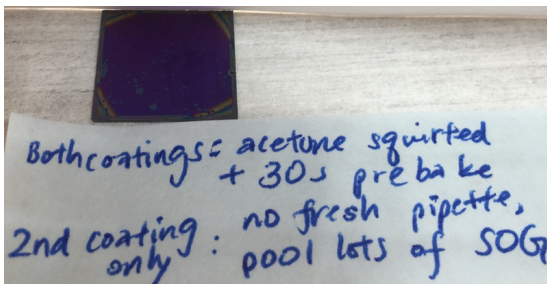 Both coatings: acetone squirted
+ 30s prebake
2nd coating only: no fresh pipette,
pool lots of SOG